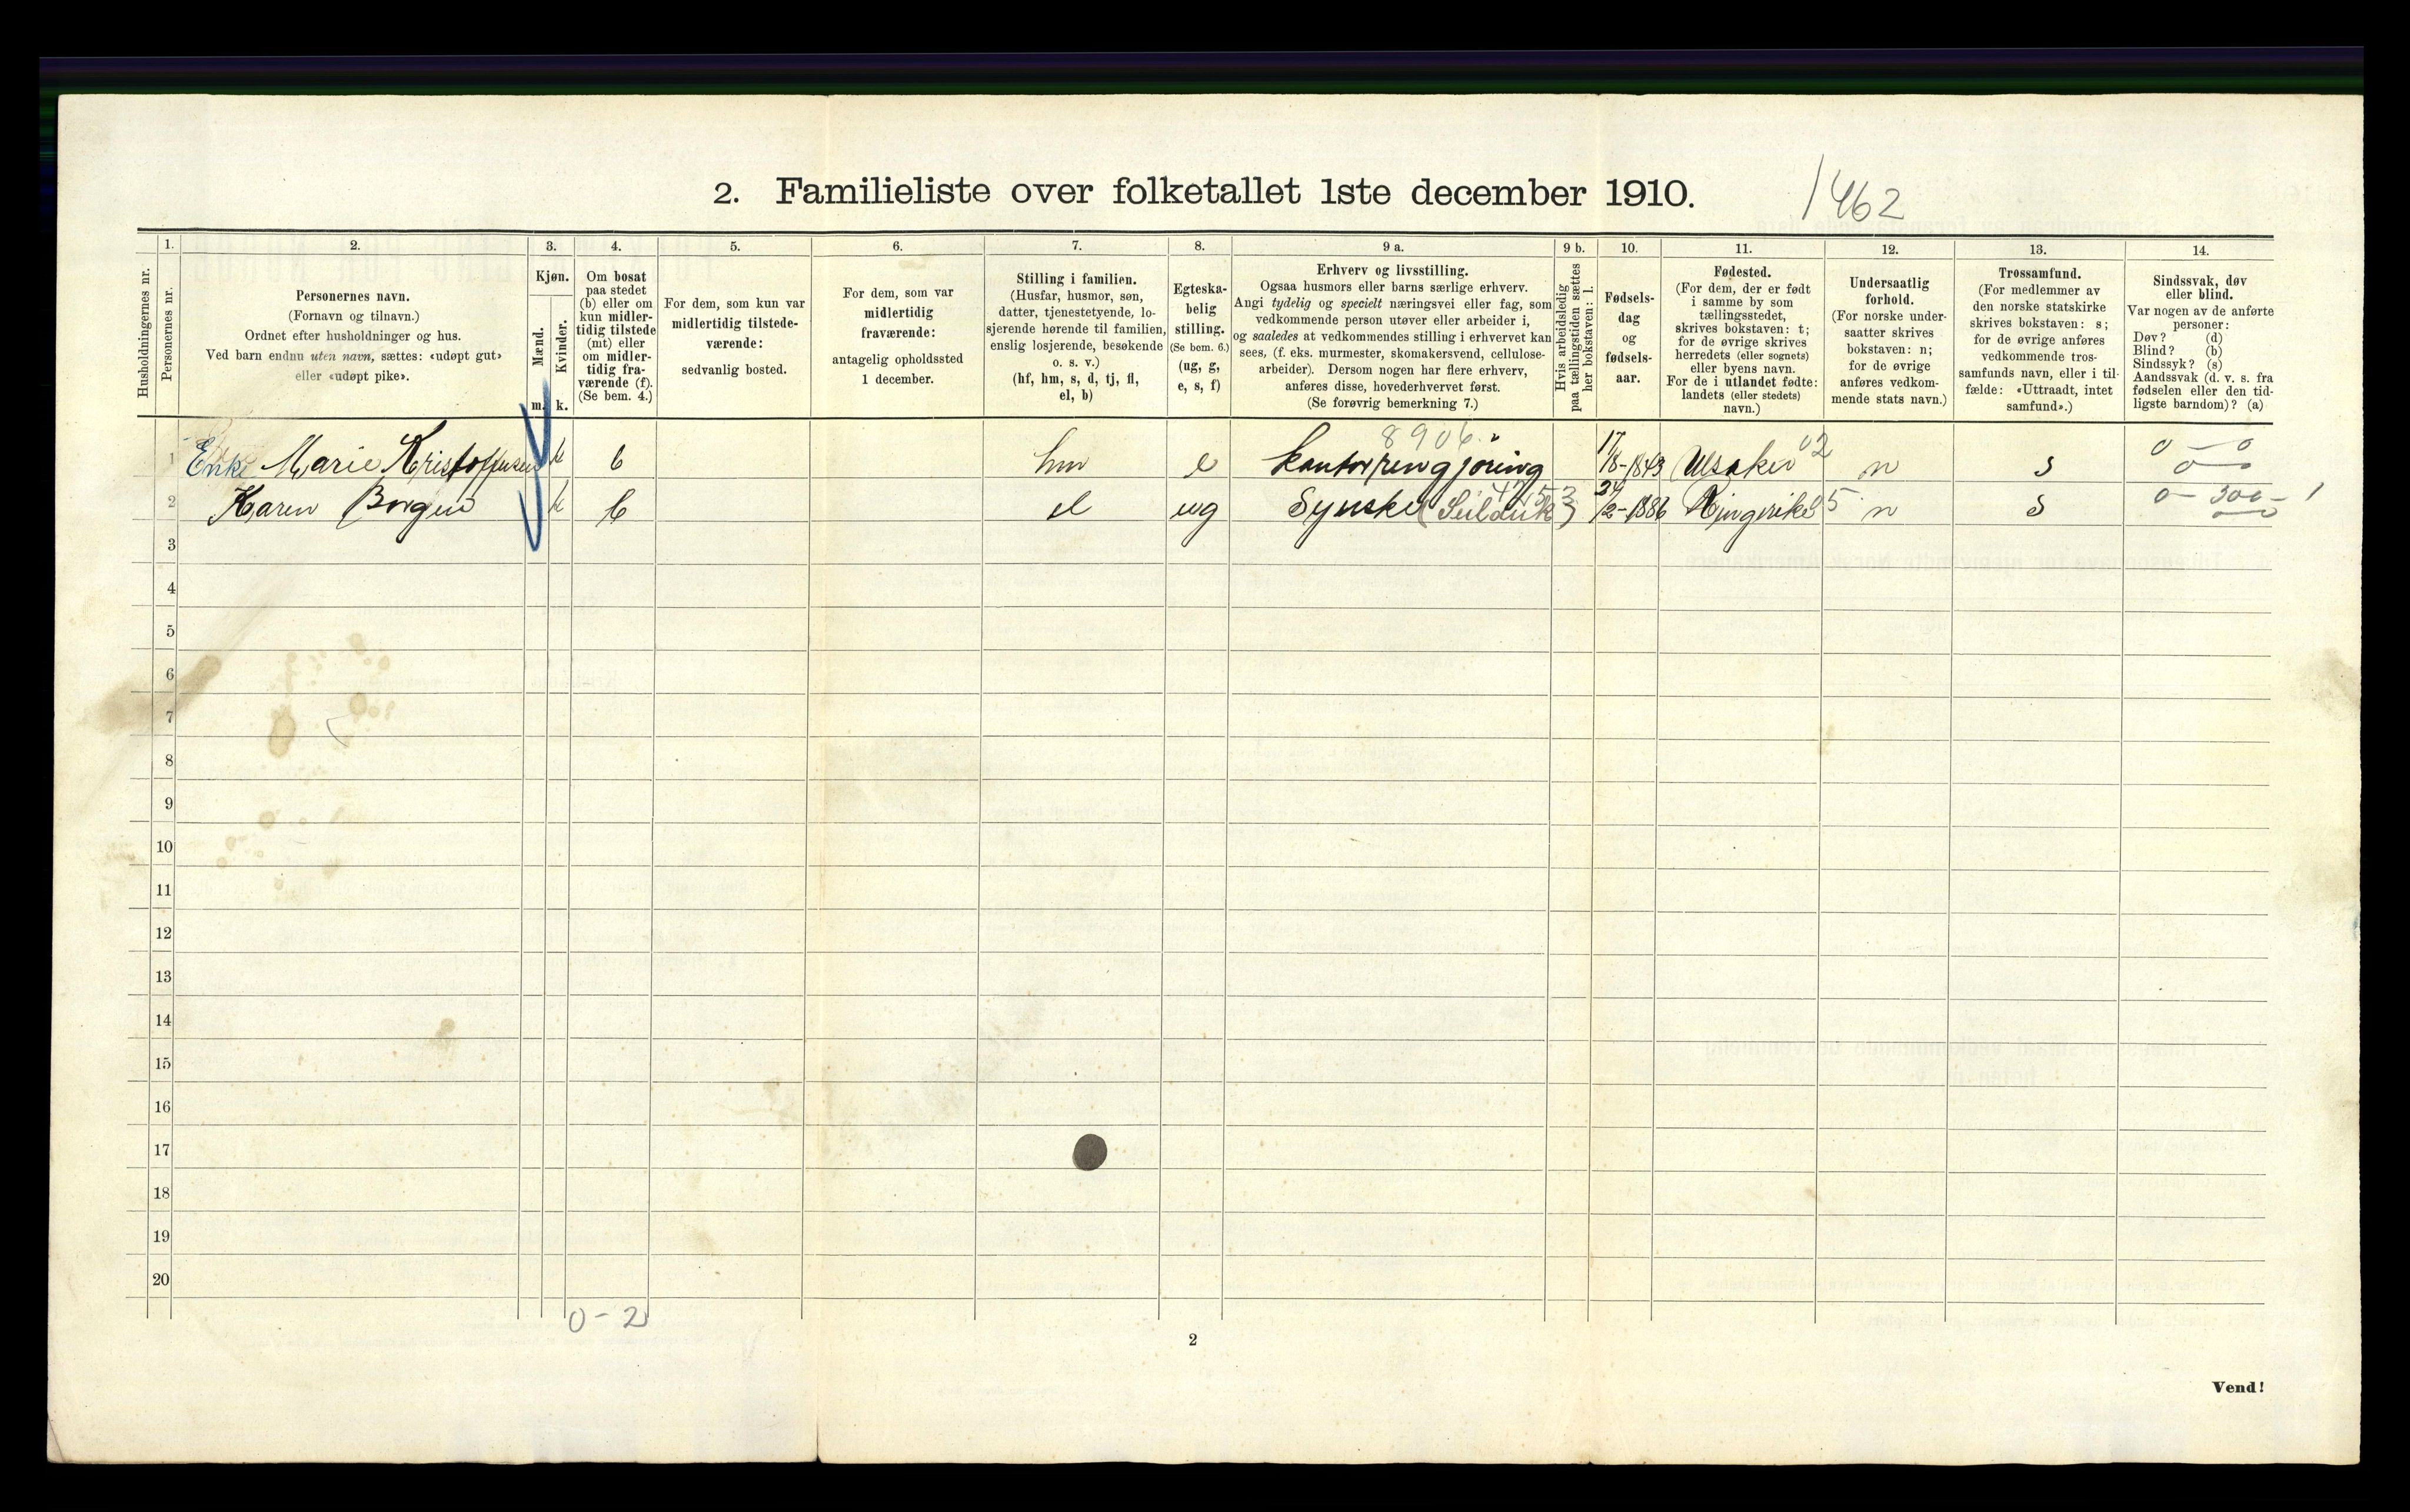 2. Familieliste over folketallet 1ste december 1910.
1462
Husholdningernes nr.
1.
Personernes nr.
2.
Personernes navn.
(Fornavn og tilnavn.)
Ordnet efter husholdninger og hus.
Ved barn endnu uten navn, sættes: «udøpt gut»
eller «udøpt pike».
3.
Kjøn.
Mænd.
Kvinder.
m. k.
4.
Om bosat
paa stedet
(b) eller om
kun midler-
tidig tilstede
(mt) eller
om midler-
tidig fra-
værende (f).
(Se bem. 4.)
5.
For dem, som kun var
midlertidig tilstede-
værende:
sedvanlig bosted.
6.
For dem, som var
midlertidig
fraværende:
antagelig opholdssted
1 december.
7.
Stilling i familien.
(Husfar, husmor, søn,
datter, tjenestetyende, lo-
sjerende hørende til familien,
enslig losjerende, besøkende
o. s. v.)
(hf, hm, s, d, tj, fl,
el, b)
8.
Egteska-
belig
stilling.
(Se bem. 6.)
(ug, g,
e, s, f)
9 a.
Erhverv og livsstilling.
Ogsaa husmors eller barns særlige erhverv.
Angi tydelig og specielt næringsvei eller fag, som
vedkommende person utøver eller arbeider i,
og saaledes at vedkommendes stilling i erhvervet kan
sees, (f. eks. murmester, skomakersvend, cellulose-
arbeider). Dersom nogen har flere erhverv,
anføres disse, hovederhvervet først.
(Se forøvrig bemerkning 7.)
9 b.
Hvis arbeidsledig
paa tællingstiden sættes
her bokstaven: l.
10.
Fødsels-
dag
og
fødsels-
aar.
11.
Fødested.
(For dem, der er født
i samme by som
tællingsstedet,
skrives bokstaven: t;
for de øvrige skrives
herredets (eller sognets)
eller byens navn.
For de i utlandet fødte:
landets (eller stedets)
navn.)
12.
Undersaatlig
forhold.
(For norske under-
saatter skrives
bokstaven: n;
for de øvrige
anføres vedkom-
mende stats navn.)
13.
Trossamfund.
(For medlemmer av
den norske statskirke
skrives bokstaven: s;
for de øvrige anføres
vedkommende tros-
samfunds navn, eller i til-
fælde: «Uttraadt, intet
samfund».)
14.
Sindssvak, døv
eller blind.
Var nogen av de anførte
personer:
Døv? (d)
Blind? (b)
Sindssyk? (s)
Aandssvak (d. v. s. fra
fødselen eller den tid-
ligste barndom)? (a)
8906 02 0 – 0
1 Enke Marie Kristoffersen k b hm e kontorrengjöring 17/8-1843 Ulsaker n s 0 – 0
2 Karen Borgen k b el ug Syerske (Seilduk) 24/2-1886 Ringerike 5 n s 0 – 300 – 1
3
4
5
6
7
8
9
10
11
12
13
14
15
16
17
18
19
20
0 - 2
2
Vend!